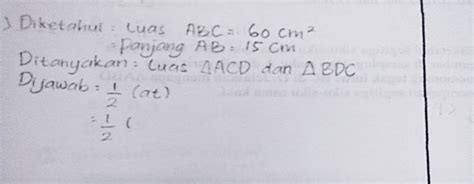 ) Diketahui : Luas ABC = 60 cm²
= Panjang AB = 15 cm
Ditanyakan = Luas △ACD dan △BDC
Dijawab = 1/2 (at)
= 1/2 (